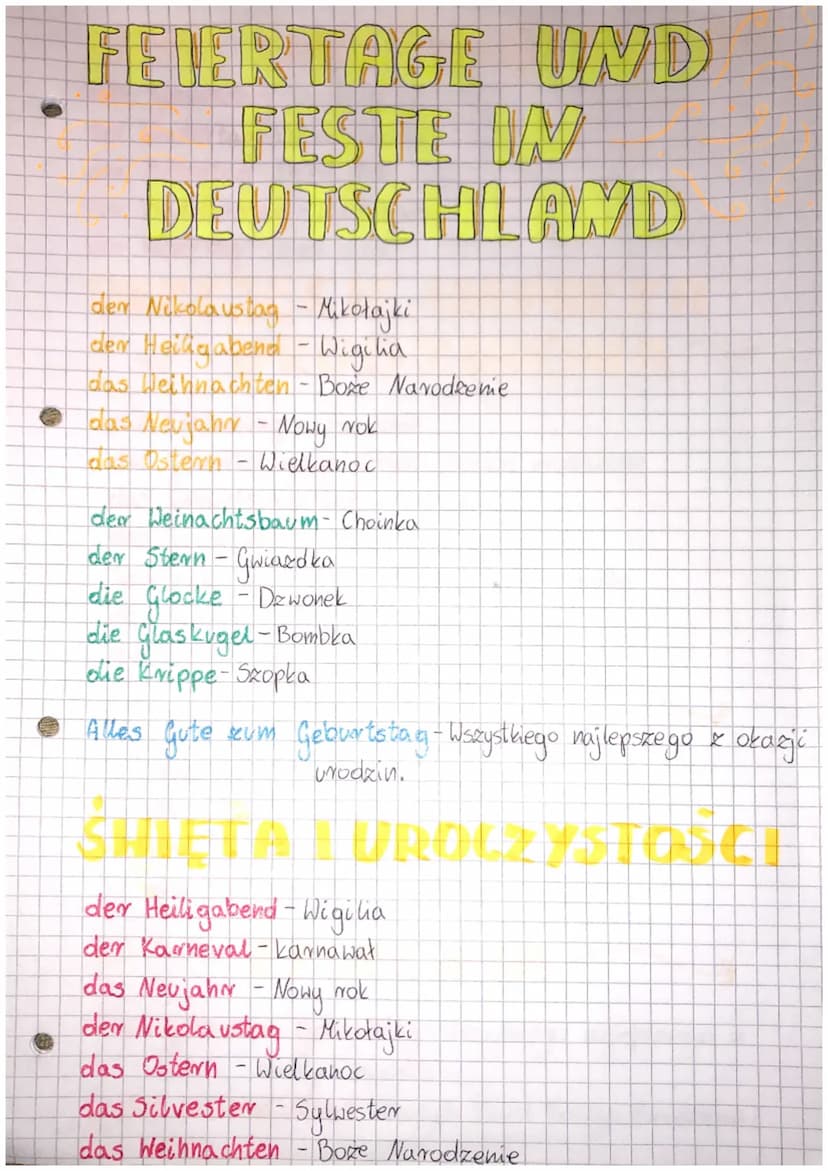 FEIERTAGE UND
FESTE IN
DEUTSCHLAND
der Nikolaustag - Mikołajki
der Heiligabend - Wigilia
das Weihnachten - Boże Narodzenie
das Neujahr - Nowy rok
das Ostern - Wielkanoc
der Weinachtsbaum - Choinka
der Stern - Gwiazdka
die Glocke - Dzwonek
die Glaskugel - Bombka
die Krippe - Szopka
Alles Gute zum Geburtstag - Wszystkiego najlepszego z okazji
urodzin.
ŚWIĘTA I UROCZYSTOŚCI
der Heiligabend - Wigilia
der Karneval - karnawał
das Neujahr - Nowy rok
der Nikolaustag - Mikołajki
das Ostern - Wielkanoc
das Silvester - Sylwester
das Weihnachten - Boże Narodzenie